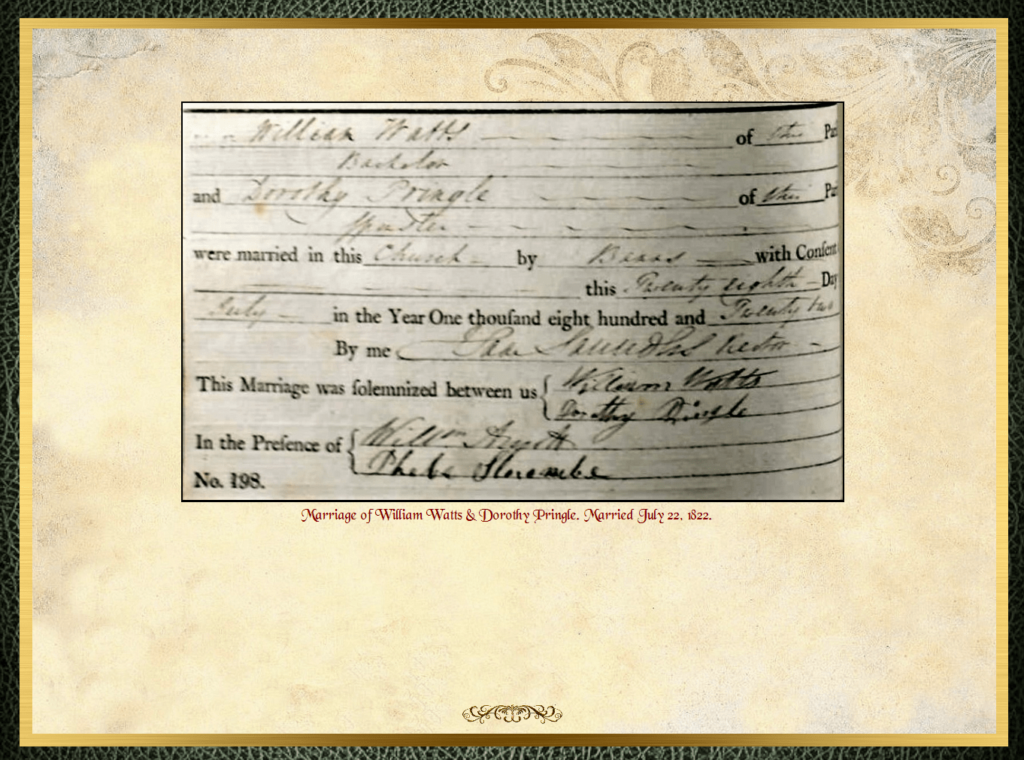 William Watts of this Par
Bachelor
and Dorothy Pringle of this Par
Spinster
were married in this Church by Banns with Conſent
this Twenty eighth Day
July in the Year One thouſand eight hundred and Twenty two
By me Saunders Rector
This Marriage was ſolemnized between us { William Watts
Dorothy Pringle
In the Preſence of { Willm
Phebe Slocombe
No. 198.
Marriage of William Watts & Dorothy Pringle. Married July 22, 1822.